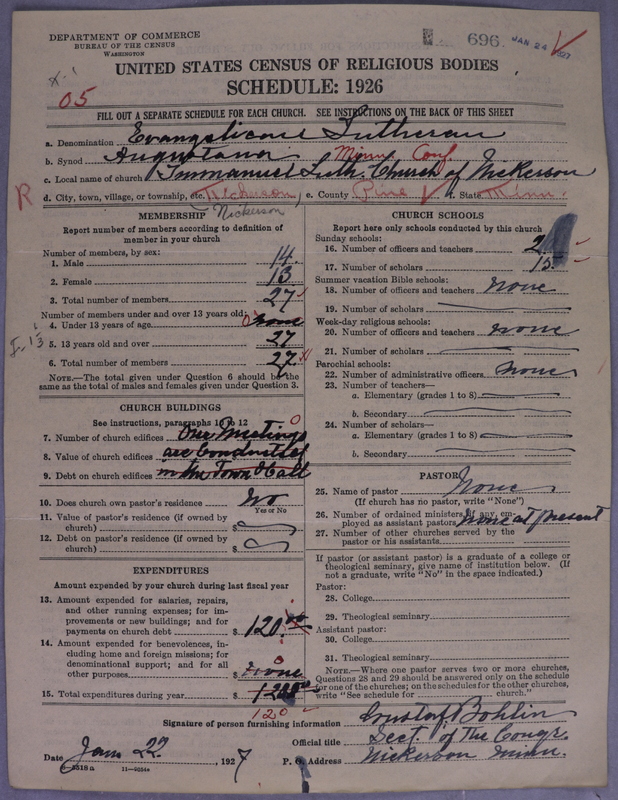 DEPARTMENT OF COMMERCE
BUREAU OF THE CENSUS
WASHINGTON
696.
JAN 24 1927
UNITED STATES CENSUS OF RELIGIOUS BODIES
SCHEDULE: 1926
05
FILL OUT A SEPARATE SCHEDULE FOR EACH CHURCH. SEE INSTRUCTIONS ON THE BACK OF THIS SHEET
a. Denomination Evangelical Lutheran
b. Synod Augustana Minn Conf.
c. Local name of church Immanuel Luth. Church of Nickerson
R d. City, town, village, or township, etc. Nickerson, e. County Pine f. State Minn.
Nickerson
MEMBERSHIP
Report number of members according to definition of
member in your church
Number of members, by sex:
1. Male 14
2. Female 13
3. Total number of members 27
Number of members under and over 13 years old:
4. Under 13 years of age 0 none
5. 13 years old and over 27
6. Total number of members 27
NOTE.—The total given under Question 6 should be the
same as the total of males and females given under Question 3.
CHURCH BUILDINGS
See instructions, paragraphs 10 to 12
0
7. Number of church edifices Our Meetings
8. Value of church edifices are conducted
9. Debt on church edifices in the Town Hall
10. Does church own pastor's residence No
Yes or No
11. Value of pastor's residence (if owned by
church) $
12. Debt on pastor's residence (if owned by
church) $
EXPENDITURES
Amount expended by your church during last fiscal year
13. Amount expended for salaries, repairs,
and other running expenses; for im-
provements or new buildings; and for
payments on church debt $ 120.00
14. Amount expended for benevolences, in-
cluding home and foreign missions; for
denominational support; and for all
other purposes $ none
15. Total expenditures during year $
120
CHURCH SCHOOLS
Report here only schools conducted by this church
Sunday schools:
16. Number of officers and teachers 2
17. Number of scholars 15
Summer vacation Bible schools:
18. Number of officers and teachers none
19. Number of scholars
Week-day religious schools:
20. Number of officers and teachers none
21. Number of scholars
Parochial schools:
22. Number of administrative officers none
23. Number of teachers—
a. Elementary (grades 1 to 8)
b. Secondary
24. Number of scholars—
a. Elementary (grades 1 to 8)
b. Secondary
PASTOR
25. Name of pastor None
(If church has no pastor, write "None")
26. Number of ordained ministers, if any, em-
ployed as assistant pastors None at present
27. Number of other churches served by the
pastor or his assistants
If pastor (or assistant pastor) is a graduate of a college or
theological seminary, give name of institution below. (If
not a graduate, write "No" in the space indicated.)
Pastor:
28. College
29. Theological seminary
Assistant pastor:
30. College
31. Theological seminary
NOTE.—Where one pastor serves two or more churches,
Questions 28 and 29 should be answered only on the schedule
for one of the churches; on the schedules for the other churches,
write "See schedule for church."
Signature of person furnishing information Gustaf Bohlin
Official title Sect. of the Congr.
Date Jan 22 1927 P. O. Address Nickerson Minn.
11—9234